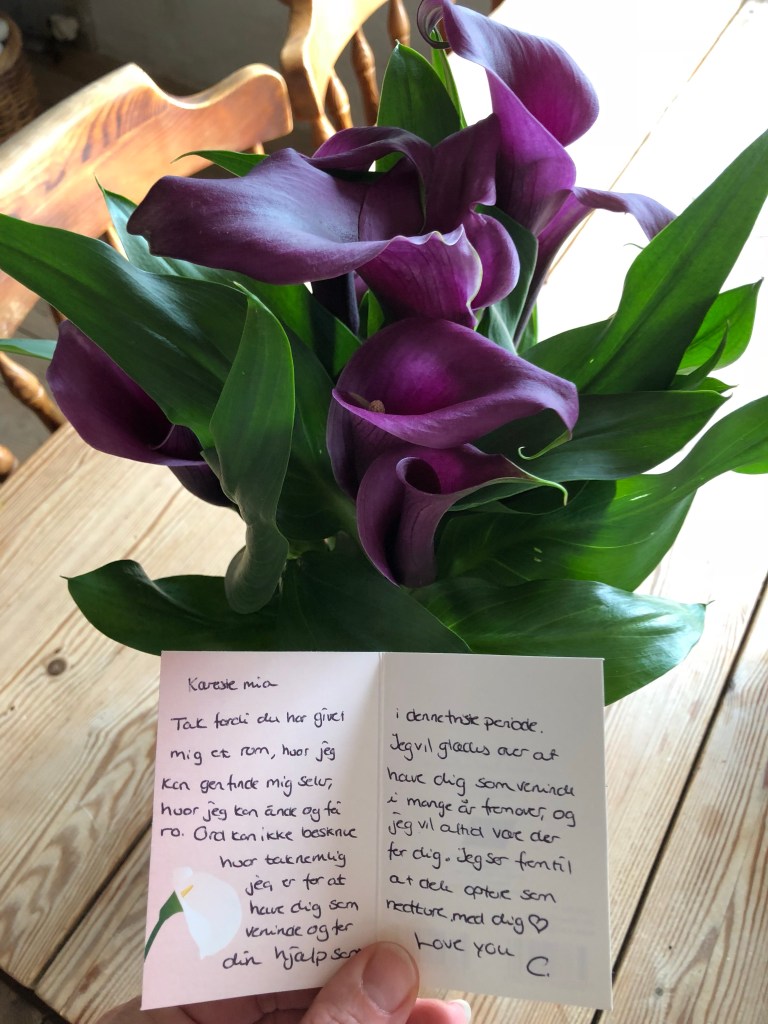 Kæreste mia
Tak fordi du har givet
mig et rom, hvor jeg
kan genfinde mig selv,
hvor jeg kan ånde og få
ro. Ord kan ikke beskrive
hvor taknemlig
jeg er for at
have dig som
veninde og for
din hjælp som
i denne triste periode.
Jeg vil glædes over at
have dig som veninde
i mange år fremover, og
jeg vil altid være der
for dig. Jeg ser frem til
at dele opture som
nedture med dig ♡
Love you
C.